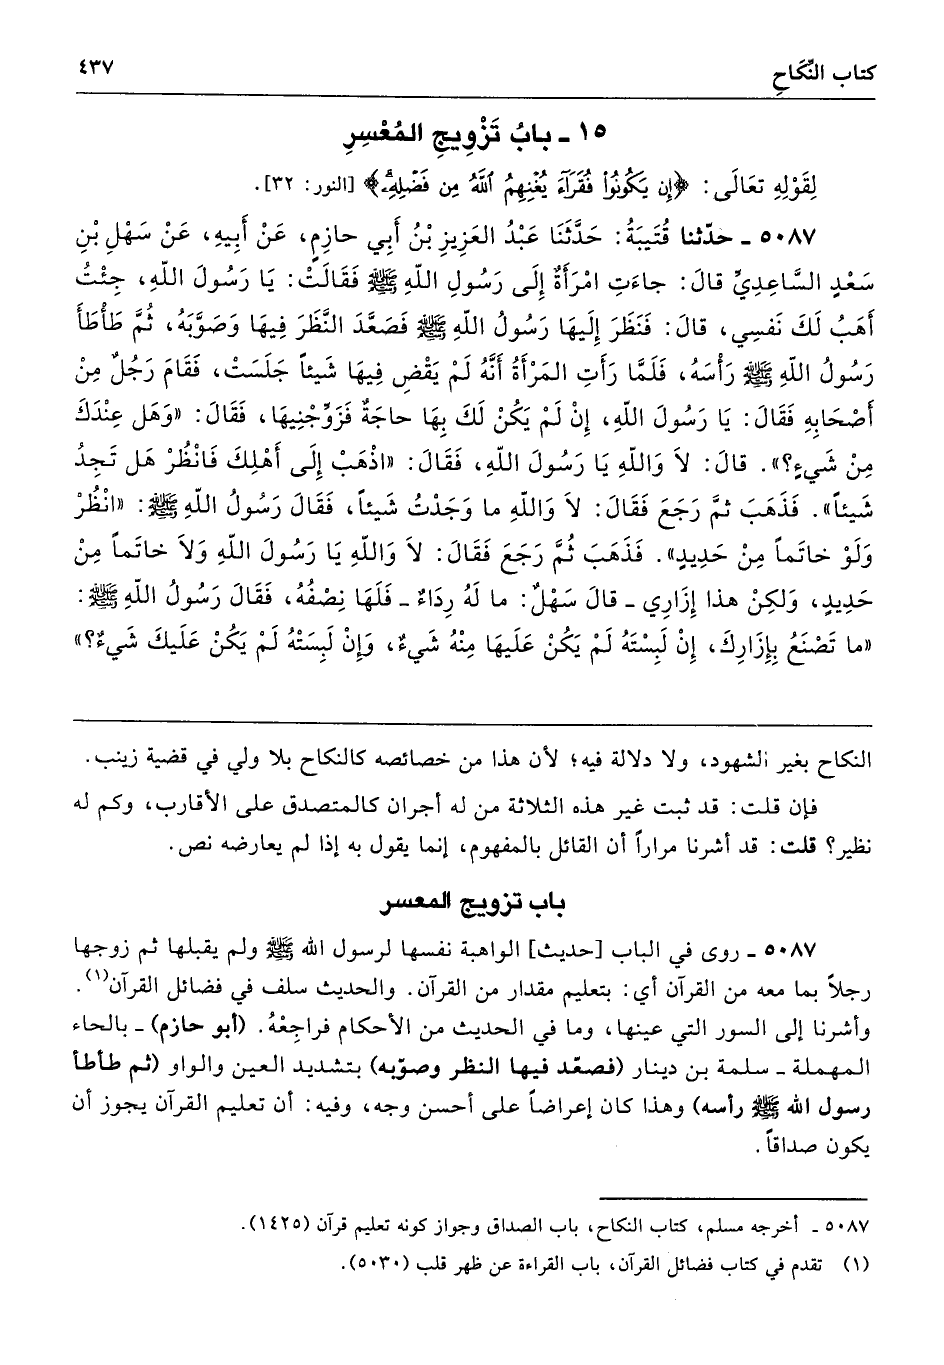 كتاب النِّكَاحِ ٤٣٧
١٥ ـ بابُ تَزْوِيجِ المُعْسِرِ
لِقَوْلِهِ تعَالَى: ﴿إِن يَكُونُوا۟ فُقَرَآءَ يُغْنِهِمُ ٱللَّهُ مِن فَضْلِهِۦ﴾ [النور: ٣٢].
٥٠٨٧ ـ حدّثنا قُتَيبَةُ: حَدَّثَنَا عَبْدُ العَزِيزِ بْنُ أَبِي حازِمٍ، عَنْ أَبِيهِ، عَنْ سَهْلِ بْنِ
سَعْدٍ السَّاعِدِيِّ قالَ: جاءَتِ امْرَأَةٌ إِلَى رَسُولِ اللهِ ﷺ فَقَالَتْ: يَا رَسُولَ اللهِ، جِئْتُ
أَهَبُ لَكَ نَفسِي، قالَ: فَنَظَرَ إِلَيهَا رَسُولُ اللهِ ﷺ فَصَعَّدَ النَّظَرَ فِيهَا وَصَوَّبَهُ، ثُمَّ طَأْطَأَ
رَسُولُ اللهِ ﷺ رَأْسَهُ، فَلَمَّا رَأَتِ المَرْأَةُ أَنَّهُ لَمْ يَقْضِ فِيهَا شَيئاً جَلَسَتْ، فَقَامَ رَجُلٌ مِنْ
أَصْحَابِهِ فَقَالَ: يَا رَسُولَ اللهِ، إِنْ لَمْ يَكُنْ لَكَ بِهَا حاجَةٌ فَزَوِّجْنِيهَا، فَقَالَ: «وَهَل عِنْدَكَ
مِنْ شَيءٍ؟». قالَ: لاَ وَاللهِ يَا رَسُولَ اللهِ، فَقَالَ: «اذْهَبْ إِلَى أَهْلِكَ فَانْظُرْ هَل تَجِدُ
شَيئاً». فَذَهَبَ ثمَّ رَجَعَ فَقَالَ: لاَ وَاللهِ ما وَجَدْتُ شَيئاً، فَقَالَ رَسُولُ اللهِ ﷺ: «انْظُرْ
وَلَوْ خاتَماً مِنْ حَدِيدٍ». فَذَهَبَ ثُمَّ رَجَعَ فَقَالَ: لاَ وَاللهِ يَا رَسُولَ اللهِ وَلاَ خاتَماً مِنْ
حَدِيدٍ، وَلكِنْ هذا إِزَارِي ـ قالَ سَهْلٌ: ما لَهُ رِدَاءٌ ـ فَلَهَا نِصْفُهُ، فَقَالَ رَسُولُ اللهِ ﷺ:
«ما تَصْنَعُ بِإِزَارِكَ، إِنْ لَبِسْتَهُ لَمْ يَكُنْ عَلَيهَا مِنْهُ شَيءٌ، وَإِنْ لَبِسَتْهُ لَمْ يَكُنْ عَلَيكَ شَيءٌ؟»
النكاح بغير الشهود، ولا دلالة فيه؛ لأن هذا من خصائصه كالنكاح بلا ولي في قضية زينب.
فإن قلت: قد ثبت غير هذه الثلاثة من له أجران كالمتصدق على الأقارب، وكم له
نظير؟ قلت: قد أشرنا مراراً أن القائل بالمفهوم، إنما يقول به إذا لم يعارضه نص.
باب تزويج المعسر
٥٠٨٧ ـ روى في الباب [حديث] الواهبة نفسها لرسول الله ﷺ ولم يقبلها ثم زوجها
رجلاً بما معه من القرآن أي: بتعليم مقدار من القرآن. والحديث سلف في فضائل القرآن(١).
وأشرنا إلى السور التي عينها، وما في الحديث من الأحكام فراجِعْهُ. (أبو حازم) ـ بالحاء
المهملة ـ سلمة بن دينار (فصعّد فيها النظر وصوّبه) بتشديد العين والواو (ثم طأطأ
رسول الله ﷺ رأسه) وهذا كان إعراضاً على أحسن وجه، وفيه: أن تعليم القرآن يجوز أن
يكون صداقاً.
٥٠٨٧ ـ أخرجه مسلم، كتاب النكاح، باب الصداق وجواز كونه تعليم قرآن (١٤٢٥).
(١) تقدم في كتاب فضائل القرآن، باب القراءة عن ظهر قلب (٥٠٣٠).